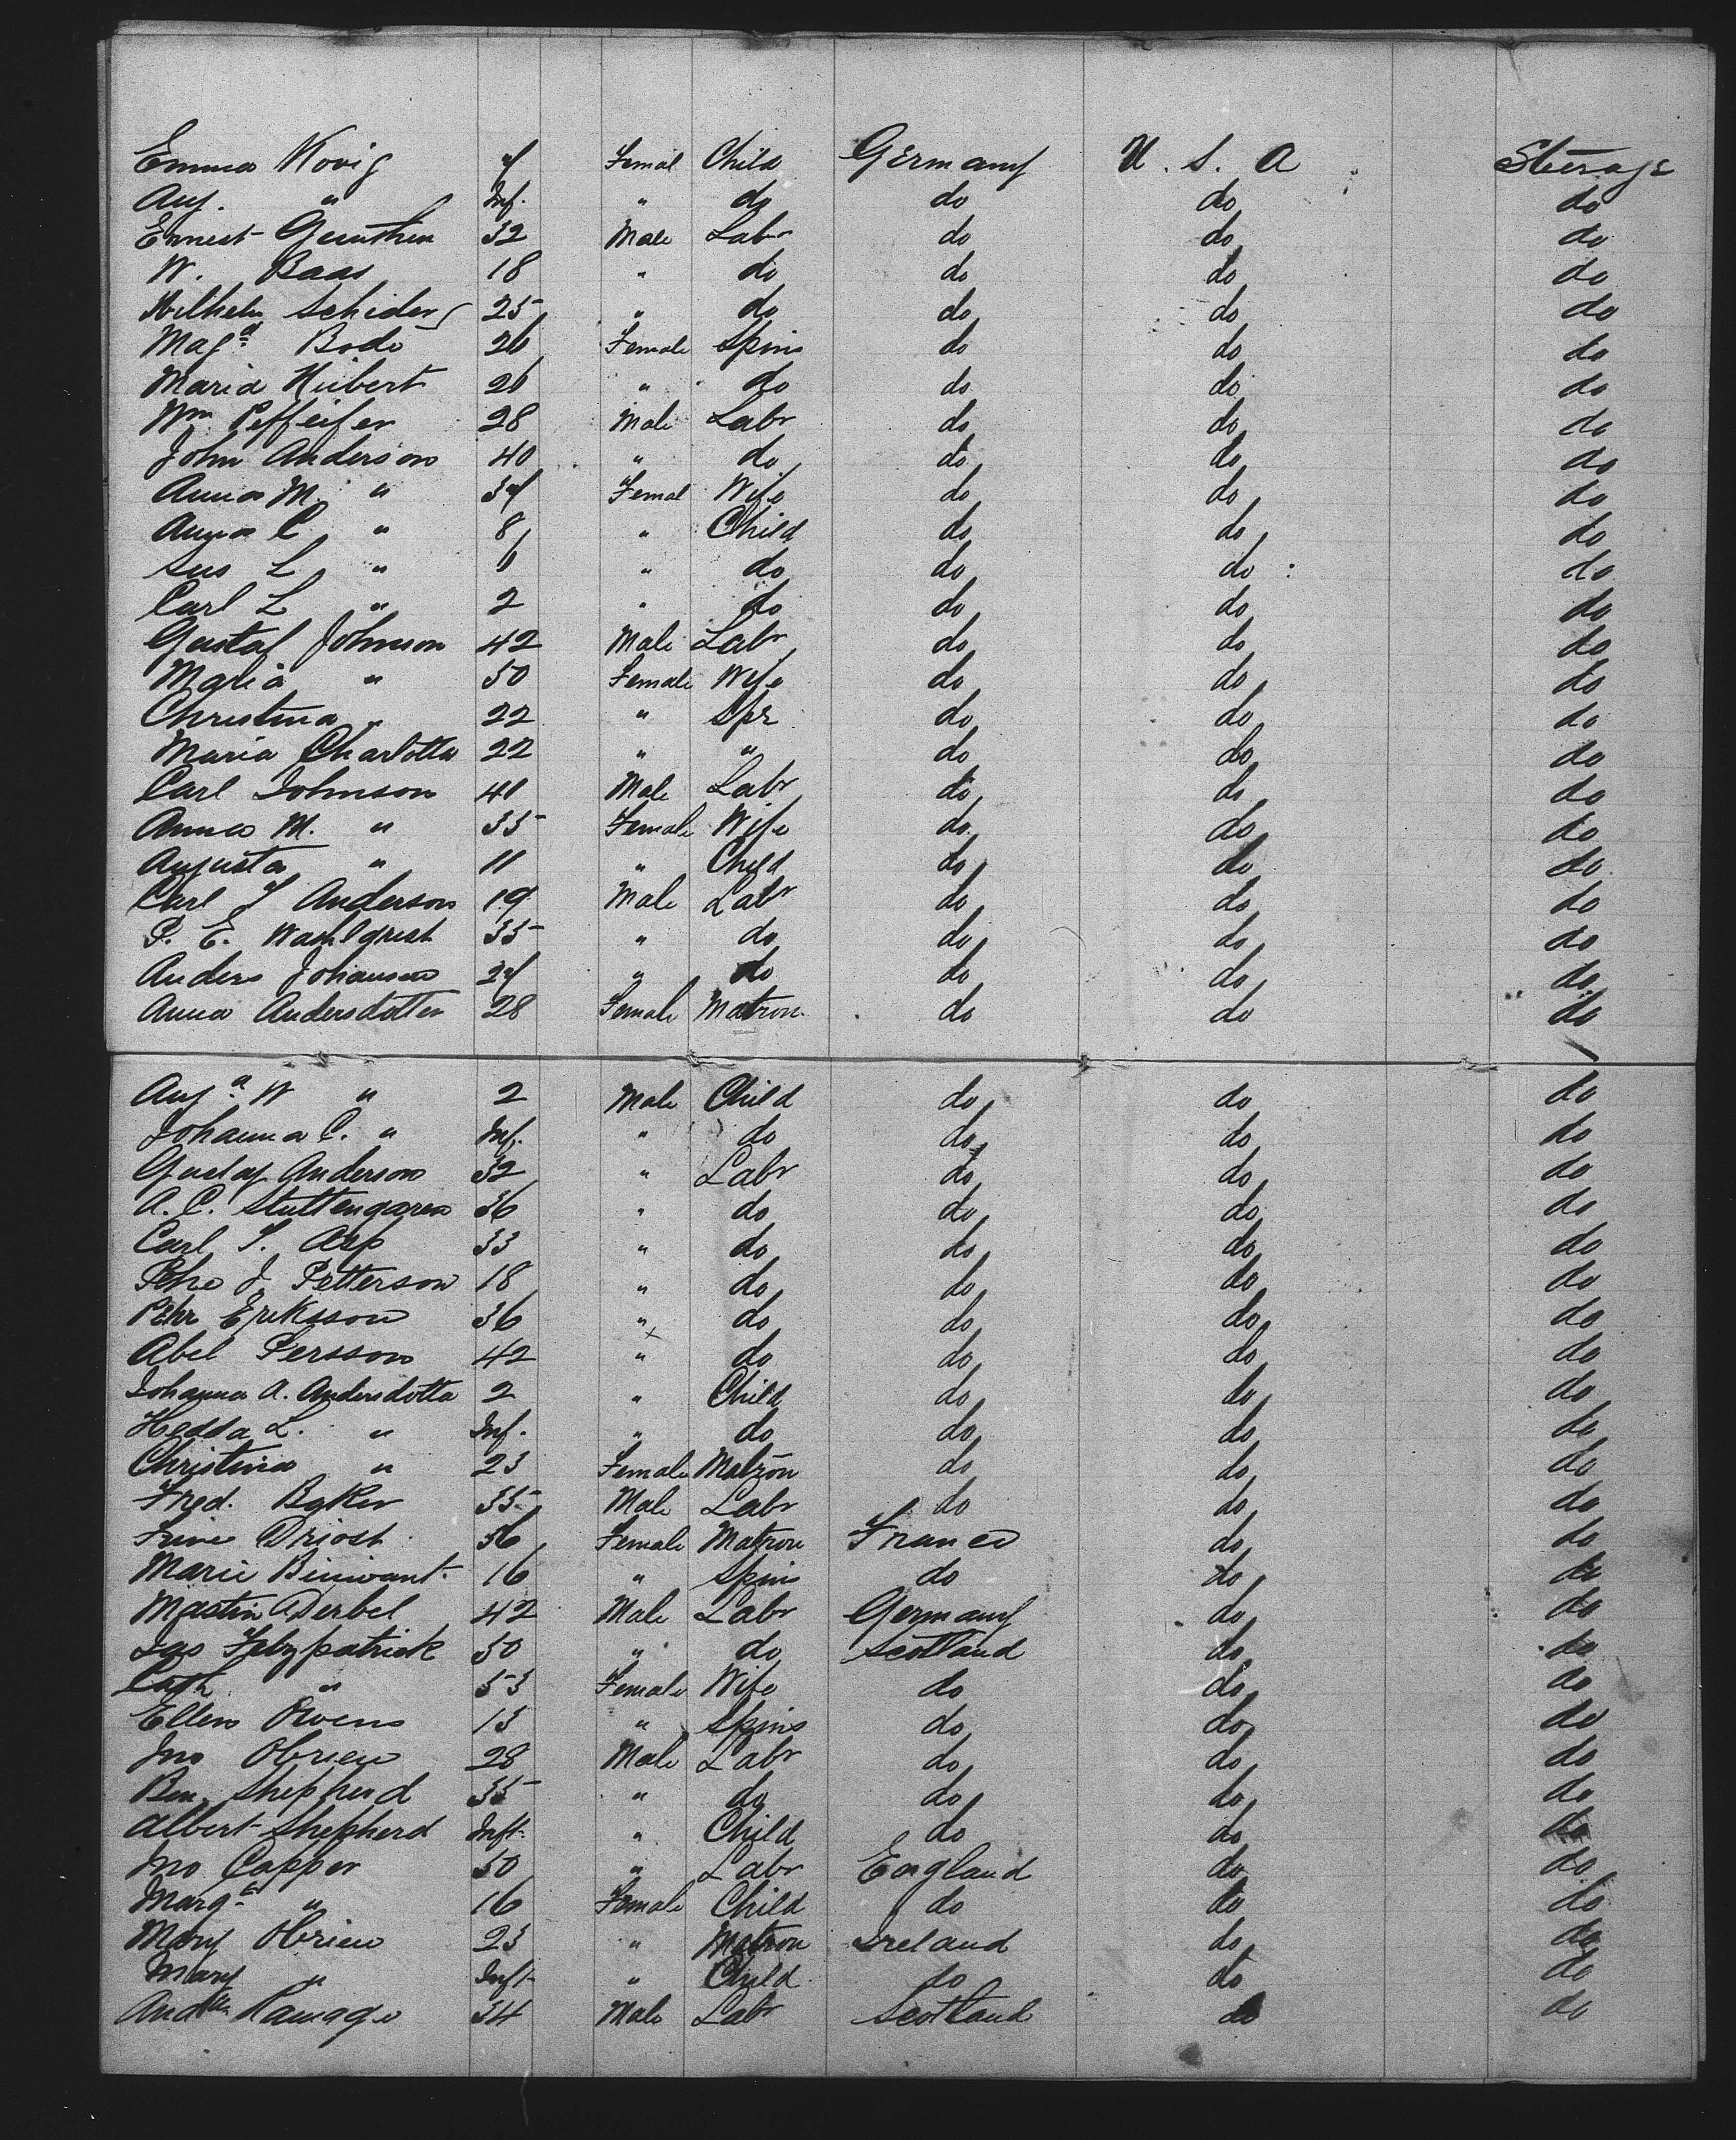 Emma Kovig 4 Femal Child Germany U. S. A Steerage
Aug. " Inf. " do do do do
Ernest Gunther 32 Male Labr do do do
W. Baas 18 " do do do do
Wilhelm Schiders 25 " do do do do
Magd Bode 26 Female Spins do do do
Maria Hubert 26 " do do do do
Wm Peffeifer 28 Male Labr do do do
John Anderson 40 " do do do do
Anna M. " 34 Femal Wife do do do
Anna C " 8 " Child do do do
Sus L " 6 " do do do do
Carl L " 2 " do do do do
Gustaf Johnson 42 Male Labr do do do
Maria " 50 Female Wife do do do
Christina " 22 " Spr do do do
Maria Charlotta 22 " " do do do
Carl Johnson 41 Male Labr do do do
Anna M. " 35 Female Wife do do do
Augusta " 11 " Child do do do
Carl J Anderson 19 Male Labr do do do
P. E. Wahlqrest 35 " do do do do
Anders Johansen 24 " do do do do
Anna Andersdotter 28 Female Matron do do do
Auga W " 2 Male Child do do do
Johanna C. " Inf. " do do do do
Gustaf Anderson 32 " Labr do do do
A. C. Stuttengaren 36 " do do do do
Carl J. Asp 33 " do do do do
J Petterson 18 " do do do do
Pehr Eriksson 36 " do do do do
Abel Persson 42 " do do do do
Johanna A. Andersdotta 2 " Child do do do
Hedda L. " Inf. " do do do do
Christina " 23 Female Matron do do do
Fred. Baker 35 Male Labr do do do
Driost 56 Female Matron France do do
Marie 16 " Spins do do do
Martin Derbel 42 Male Labr Germany do do
Jas Fitzpatrick 50 " do Scotland do do
Cath " 53 Female Wife do do do
Ellen Owens 13 " Spins do do do
Jno Obrien 28 Male Labr do do do
Ben. Shepherd 35 " do do do do
Albert Shepherd Inft. " Child do do do
Jno Capper 50 " Labr England do do
Margt " 16 Female Child do do do
Mary Obrien 23 " Matron Ireland do do
Mary " Inft " Child do do do
Andw Ramage 34 Male Labr Scotland do do